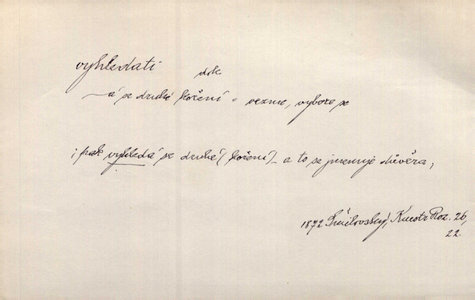 vyhledati dok
— á se druhé koření a vezme, vybere se
i pak vyhledá se druhé (koření) a to se jmenuje důvěra;
1872 Šmilovský,
22.